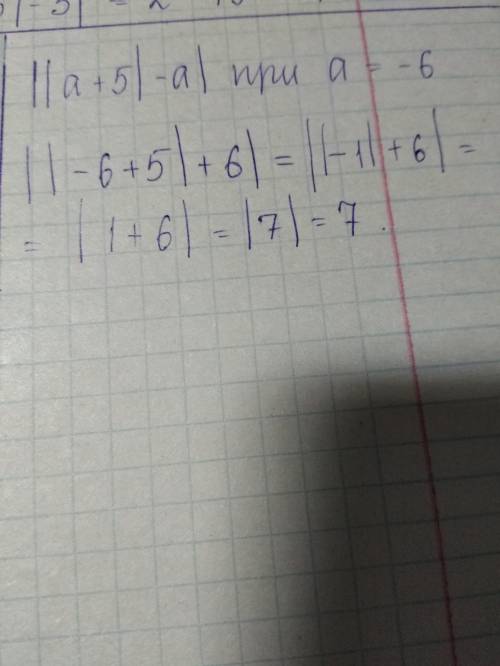 ||a + 5| - a| при a = -6
||-6 + 5| + 6| = ||-1| + 6| =
= |1 + 6| = |7| = 7.